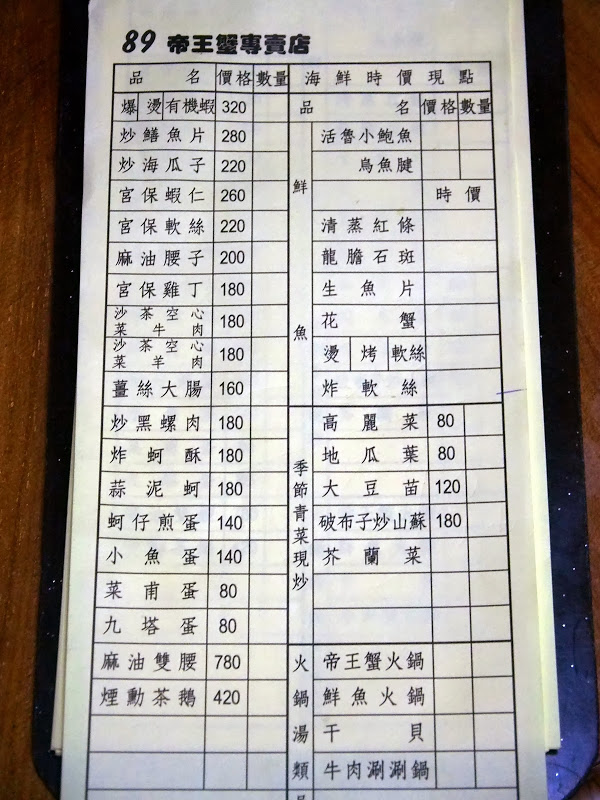 89 帝王蟹專賣店
品名 價格 數量
爆 燙 有機蝦 320
炒鱔魚片 280
炒海瓜子 220
宮保蝦仁 260
宮保軟絲 220
麻油腰子 200
宮保雞丁 180
沙茶空心菜牛肉 180
沙茶空心菜羊肉 180
薑絲大腸 160
炒黑螺肉 180
炸蚵酥 180
蒜泥蚵 180
蚵仔煎蛋 140
小魚蛋 140
菜甫蛋 80
九塔蛋 80
麻油雙腰 780
煙勳茶鵝 420
海鮮時價現點
品名 價格 數量
鮮魚
活魯小鮑魚
烏魚腱
時價
清蒸紅條
龍膽石斑
生魚片
花蟹
燙 烤 軟絲
炸軟絲
季節青菜現炒
高麗菜 80
地瓜葉 80
大豆苗 120
破布子炒山蘇 180
芥蘭菜
火鍋湯類
帝王蟹火鍋
鮮魚火鍋
干貝
牛肉涮涮鍋